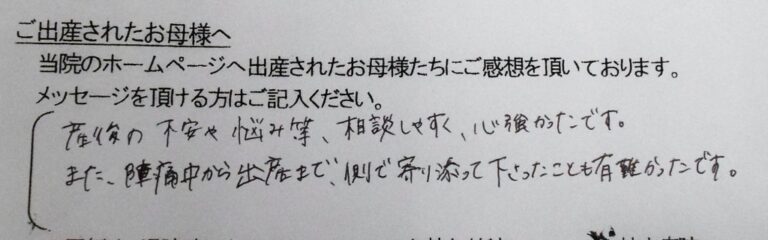 ご出産されたお母様へ
当院のホームページへ出産されたお母様たちにご感想を頂いております。
メッセージを頂ける方はご記入ください。
産後の不安や悩み等、相談しやすく、心強かったです。
また、陣痛中から出産まで、側で寄り添って下さったことも有難かったです。